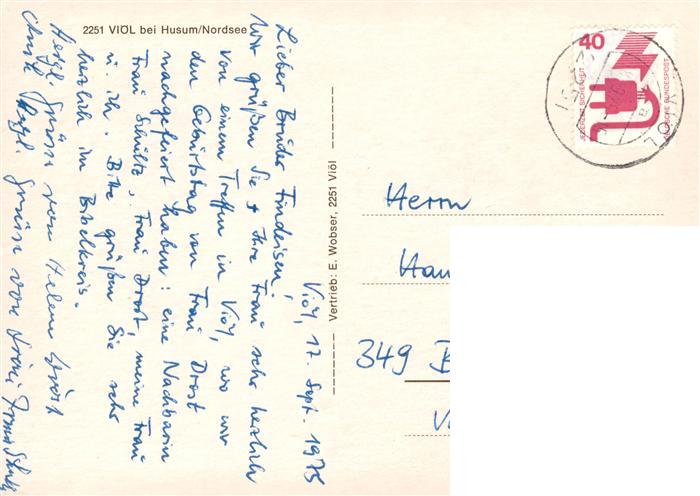 2251 VIÖL bei Husum/Nordsee
Viöl, 17. Sept. 1975
Lieber Bruder Findeisen!
Wir grüßen Sie + Ihre Frau sehr herzlich
von einem Treffen in Viöl, wo wir
den Geburtstag von Frau Drost
nachgefeiert haben: eine Nachbarin
Frau Schültz, Frau Drost, meine Frau
u. ich. Bitte grüßen Sie sehr
herzlich im Bibelkreis.
Herzl. Grüsse von Helene Drost
Herzl. Grüsse von Frau
Vertrieb: E. Wobser, 2251 Viöl
40
JEDERZEIT SICHERHEIT
DEUTSCHE BUNDESPOST
VIÖL
Herrn
Han
349 B
V